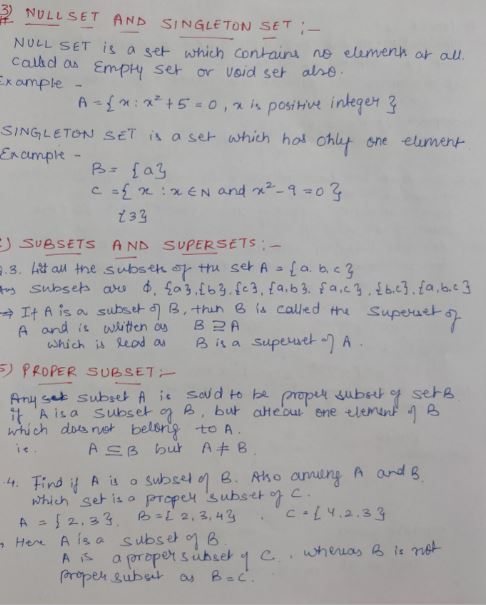 3) NULL SET AND SINGLETON SET :-
NULL SET is a set which contains no elements at all.
called as Empty set or void set also.
Example -
A = { x : x² + 5 = 0, x is positive integer }
SINGLETON SET is a set which has only one element.
Example -
B = {a}
C = { x : x ∈ N and x² - 9 = 0 }
{3}
) SUBSETS AND SUPERSETS :-
.3. list all the subsets of the set A = {a. b, c}
subsets are ϕ, {a}, {b}, {c}, {a, b}, {a, c}, {b, c}, {a, b, c}
⇒ If A is a subset of B, then B is called the superset of
A and is written as B ⊇ A
which is read as B is a superset of A.
5) PROPER SUBSET :-
Any subset A is said to be proper subset of set B
if A is a subset of B, but atleast one element of B
which does not belong to A.
ie. A ⊆ B but A ≠ B.
.4. Find if A is a subset of B. Also among A and B,
which set is a proper subset of C.
A = {2, 3}. B = {2, 3, 4}. C = {4, 2, 3}
Here A is a subset of B.
A is a proper subset of C., whereas B is not
proper subset as B = C.